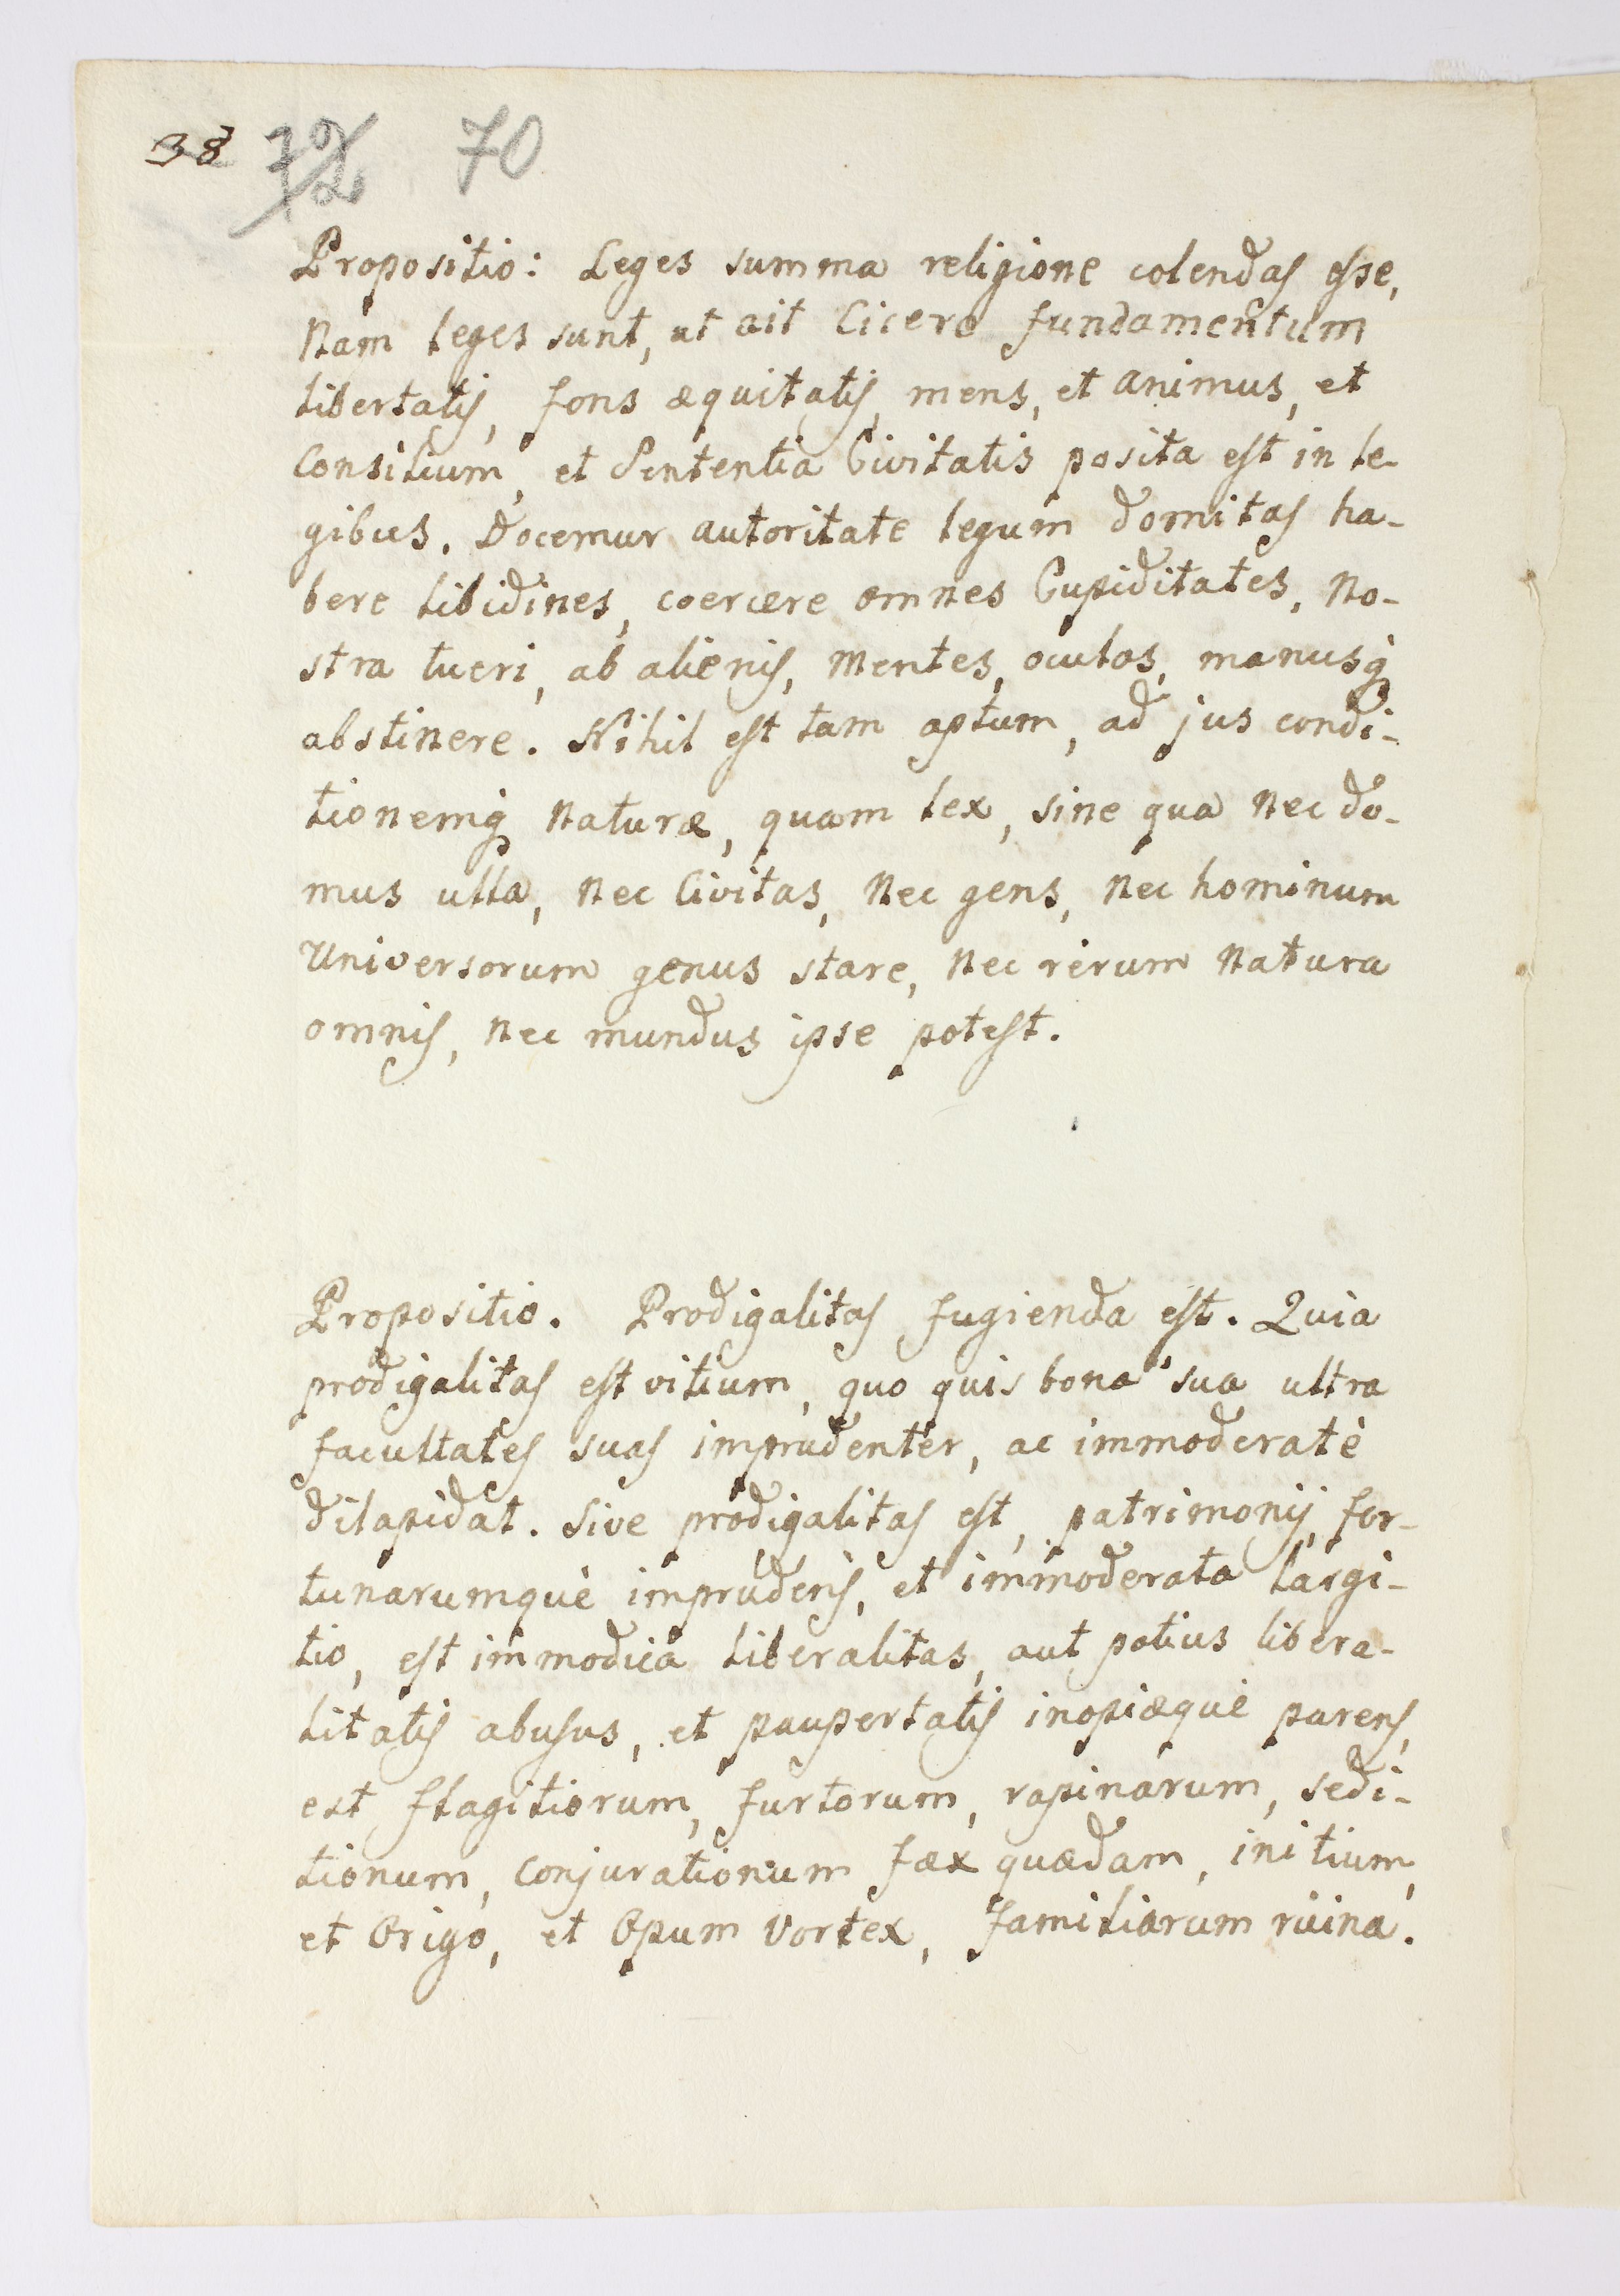 38 72 70
Propositio: Leges summa religione colendas esse,
Nam leges sunt, ut ait Cicero fundamentum
libertatis, fons æquitatis, mens, et animus, et
Consilium, et Sententia Civitatis posita est in le-
gibus. Docemur autoritate legum domitas ha-
bere libidines, coercere omnes Cupiditates, No-
stra tueri, ab alienis, Mentes, oculos, manusq
abstinere. Nihil est tam aptum, ad jus condi-
tionemq Naturæ, quam lex, sine qua Nec do-
mus ulla, Nec Civitas, Nec gens, Nec hominum
Universorum genus stare, Nec rerum Natura
omnis, Nec mundus ipse potest.
Propositio. Prodigalitas fugienda est. Quia
prodigalitas est vitium, quo quis bona sua ultra
facultates suas imprudenter, ac immoderatè
dilapidat. Sive prodigalitas est, patrimonij, for-
tunarumquè imprudens, et immoderata largi-
tio, est immodica liberalitas, aut potius libera-
litatis abusus, et paupertatis inopiæquè parens,
est flagitiorum, furtorum, rapinarum, sedi-
tionum, Conjurationum fæx quædam, initium,
et Origo, et Opum Vortex, familiarum ruina.